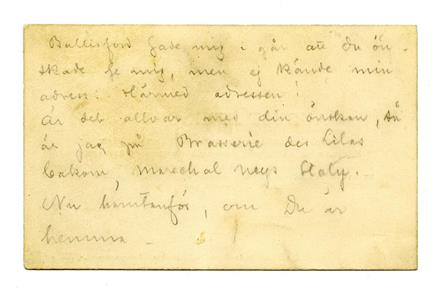 sade mig i går att du ön-
skade se mig, men ej kände min
adress: Härmed adressen!
Är det allvar med din önskan, så
är jag på Brasserie des Lilas
bakom, Marechal Neys Staty.-
Nu, om Du är
hemma -